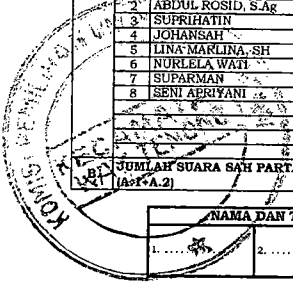 2 ABDUL ROSID, S.Ag
3 SUPRIHATIN
4 JOHANSAH
5 LINA MARLINA, SH
6 NURLELA WATI
7 SUPARMAN
8 SENI APRIYANI
B JUMLAH SUARA SAH PART
(A.1+A.2)
NAMA DAN T
1. ........ 2. .....
KOMISI PEMILIHAN UM